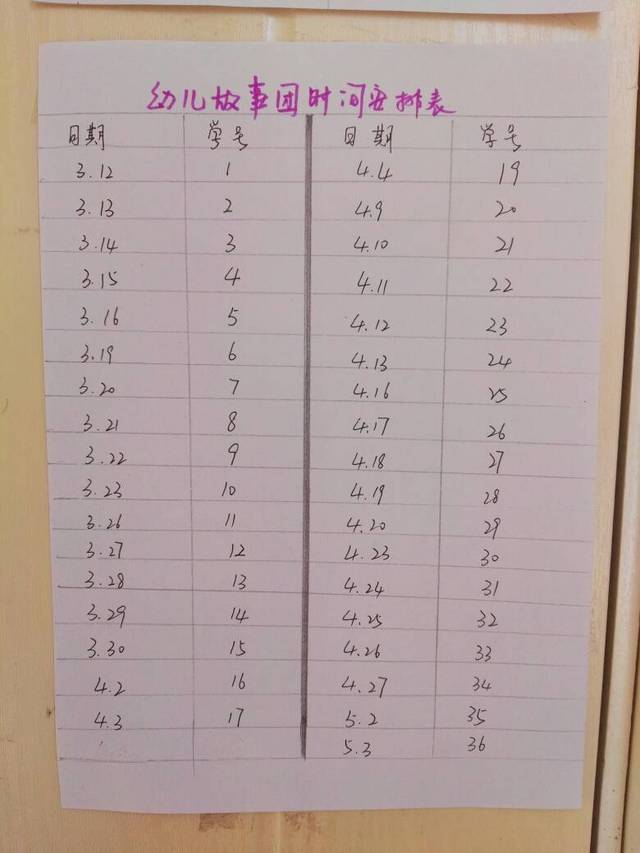 幼儿故事团时间安排表
日期 学号 日期 学号
3.12 1 4.4 19
3.13 2 4.9 20
3.14 3 4.10 21
3.15 4 4.11 22
3.16 5 4.12 23
3.19 6 4.13 24
3.20 7 4.16 25
3.21 8 4.17 26
3.22 9 4.18 27
3.23 10 4.19 28
3.26 11 4.20 29
3.27 12 4.23 30
3.28 13 4.24 31
3.29 14 4.25 32
3.30 15 4.26 33
4.2 16 4.27 34
4.3 17 5.2 35
5.3 36